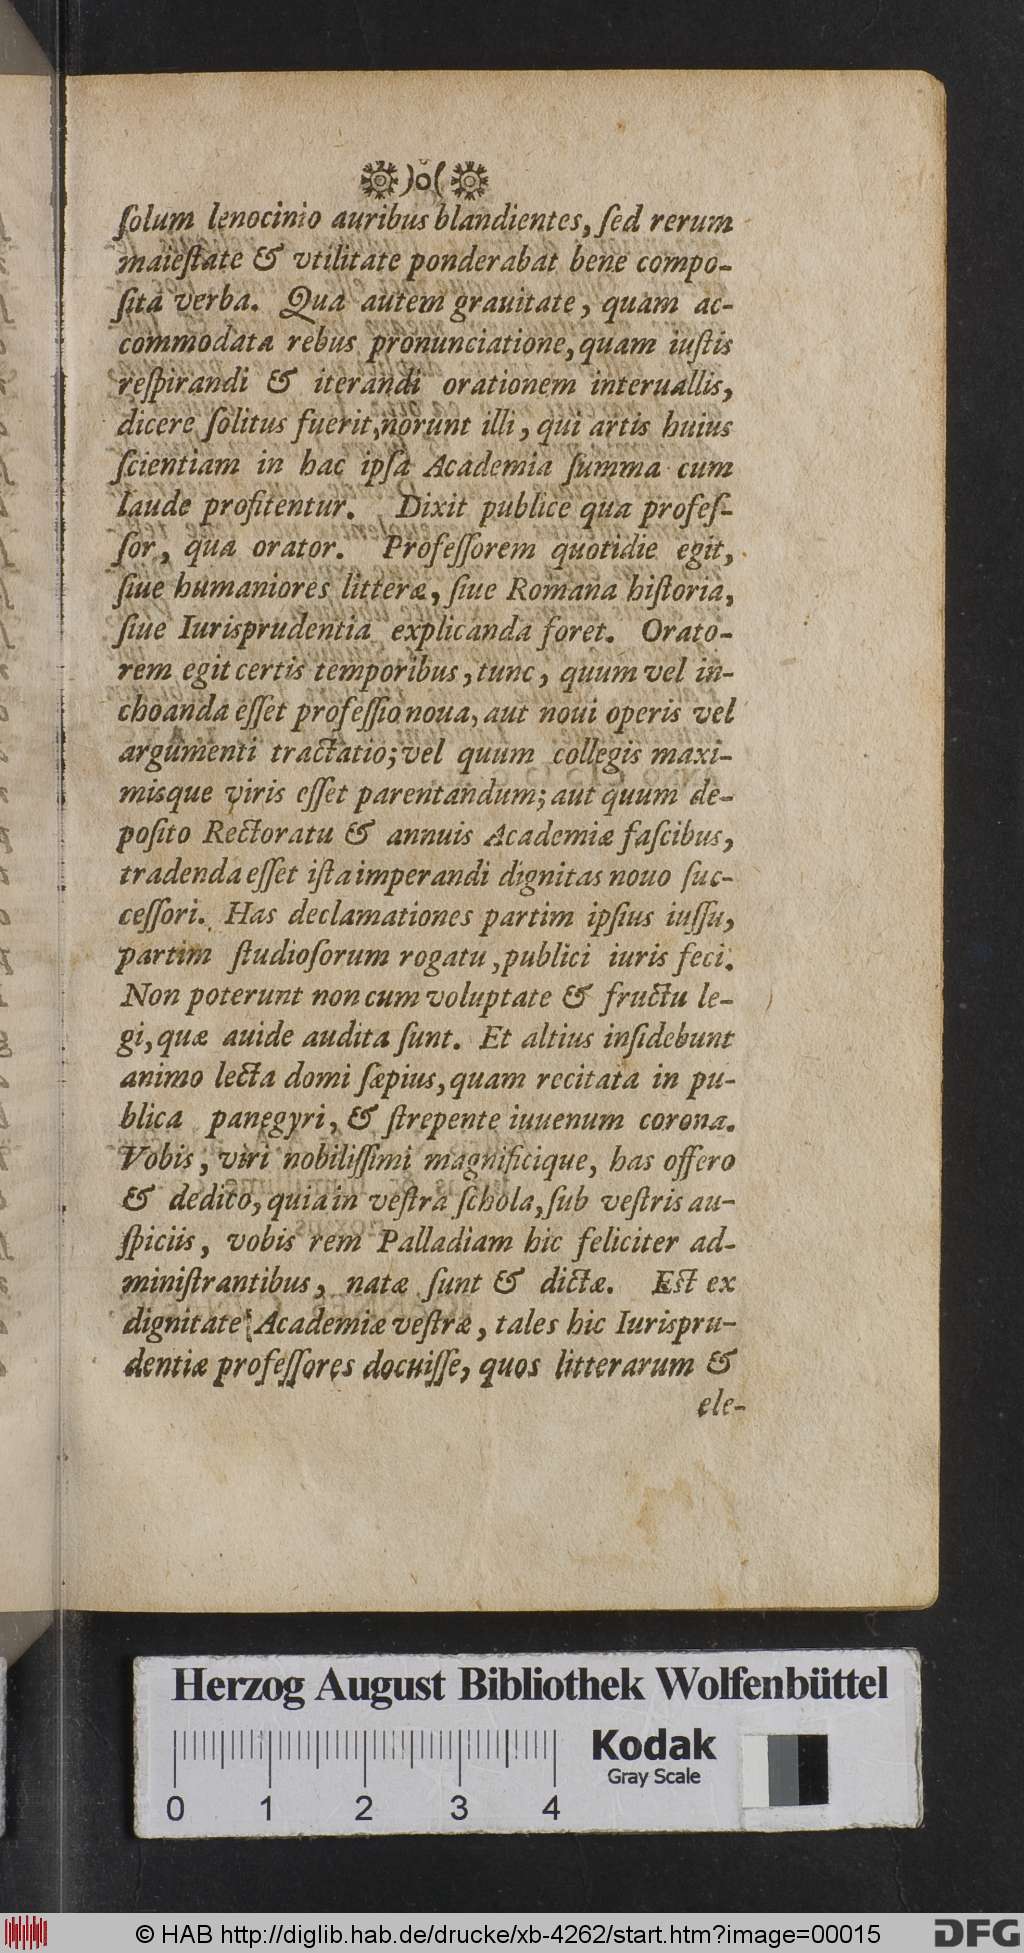 )o(
ſolum lenocinio auribus blandientes, ſed rerum
maieſtate & vtilitate ponderabat bene compo-
ſita verba. Qua autem grauitate, quam ac-
commodata rebus pronunciatione, quam iuſtis
reſpirandi & iterandi orationem interuallis,
dicere ſolitus fuerit, norunt illi, qui artis huius
ſcientiam in hac ipſa Academia ſumma cum
laude profitentur. Dixit publice qua profeſ-
ſor, qua orator. Profeſſorem quotidie egit,
ſiue humaniores litteræ, ſiue Romana hiſtoria,
ſiue Iurisprudentia explicanda foret. Orato-
rem egit certis temporibus, tunc, quum vel in-
choanda eſſet profeſſio noua, aut noui operis vel
argumenti tractatio; vel quum collegis maxi-
misque viris eſſet parentandum; aut quum de-
poſito Rectoratu & annuis Academiæ faſcibus,
tradenda eſſet iſta imperandi dignitas nouo ſuc-
ceſſori. Has declamationes partim ipſius iuſſu,
partim ſtudioſorum rogatu, publici iuris feci.
Non poterunt non cum voluptate & fructu le-
gi, quæ auide audita ſunt. Et altius inſidebunt
animo lecta domi ſæpius, quam recitata in pu-
blica panegyri, & ſtrepente iuuenum corona.
Vobis, viri nobiliſſimi magnificique, has offero
& dedico, quia in veſtra ſchola, ſub veſtris au-
ſpiciis, vobis rem Palladiam hic feliciter ad-
miniſtrantibus, natæ ſunt & dictæ. Eſt ex
dignitate Academiæ veſtræ, tales hic Iurispru-
dentiæ profeſſores docuiſſe, quos litterarum &
ele-
Herzog August Bibliothek Wolfenbüttel
Kodak
Gray Scale
0 1 2 3 4
© HAB http://diglib.hab.de/drucke/xb-4262/start.htm?image=00015
DFG